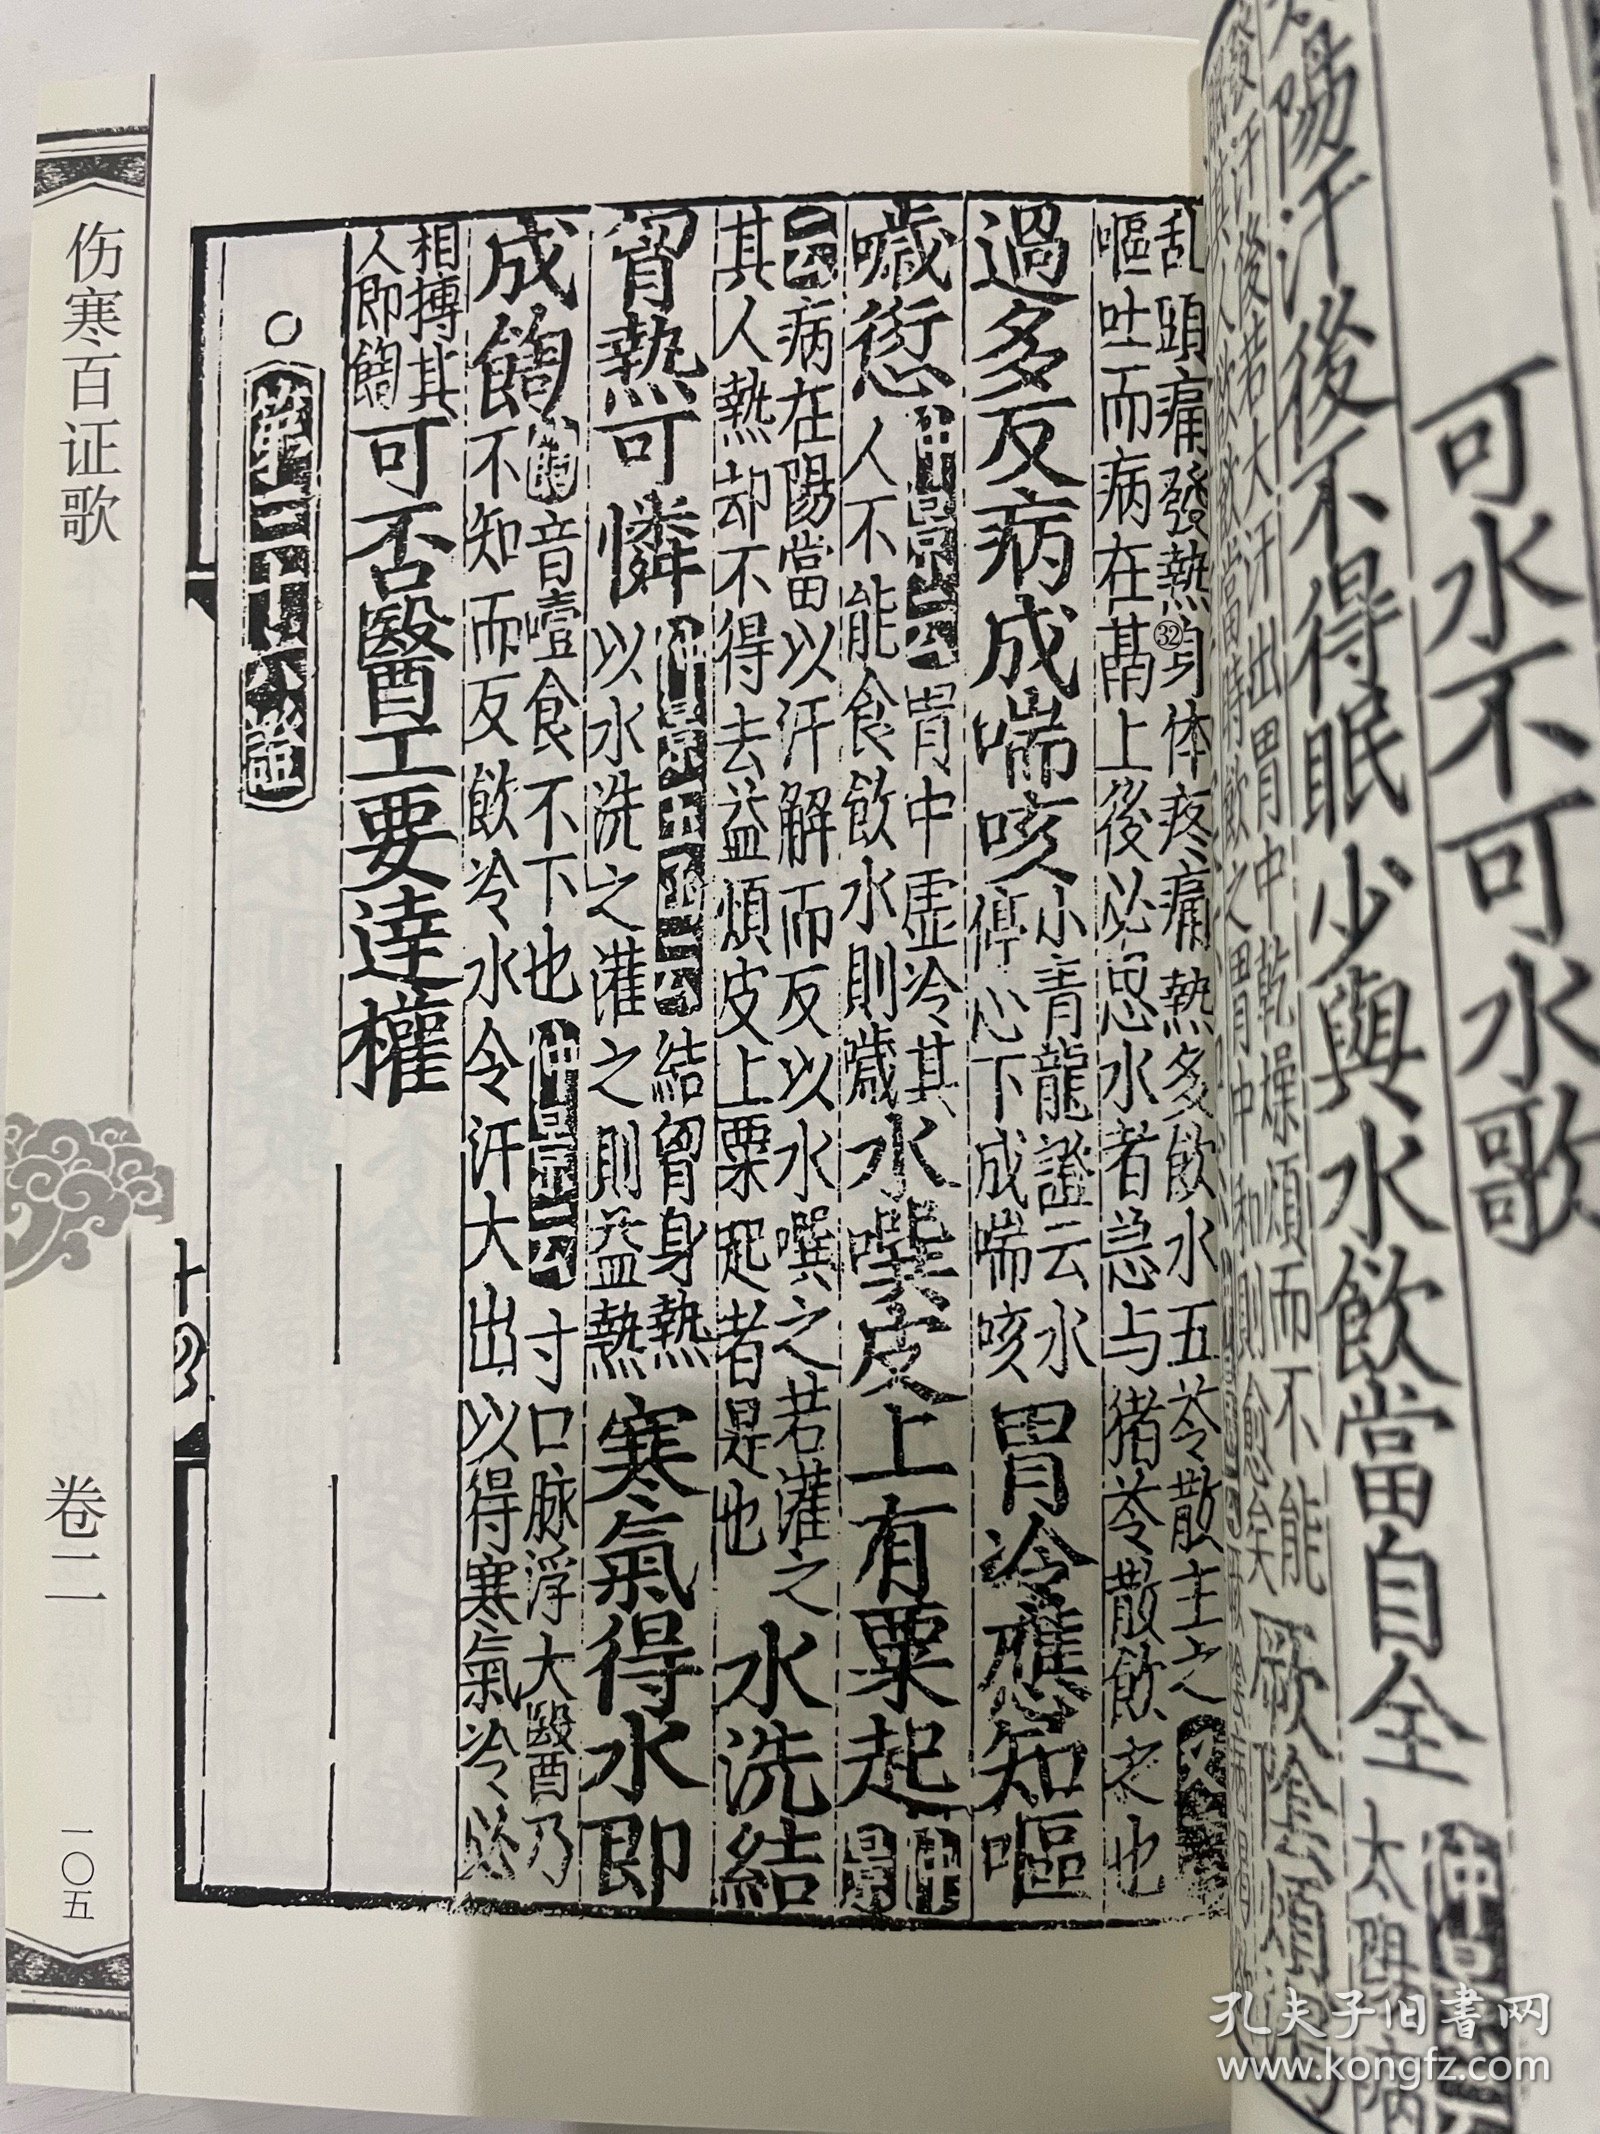 可水不可水歌
陽汗後不得眠少與水飲當自全
太陽病
發汗後若大汗出胃中乾燥煩而不能
厥陰
乱頭痛發熱身体疼痛熱多飲水五苓散主之又
㉜
嘔吐而病在膈上後必思水者急与猪苓散飲之也
過多反病成喘咳
小青龍證云水
停心下成喘咳
胃冷應知嘔
噦愆
仲景云胃中虛冷其
人不能食飲水則噦
水噀皮上有粟起
仲
景
云病在陽當以汗解而反以水噀之若灌之
其人熱却不得去益煩皮上粟起者是也
水洗結
胷熱可憐
仲景玉函云結胷身熱
以水洗之灌之則益熱
寒氣得水即
成䭇
䭇音噎食不下也仲景云寸口脉浮大醫乃
不知而反飲冷水令汗大出以得寒氣冷必
相搏其
人即䭇
可否醫工要達權
○
第二十六證
十四
伤寒百证歌
卷二
一〇五
孔夫子旧书网
www.kongfz.com